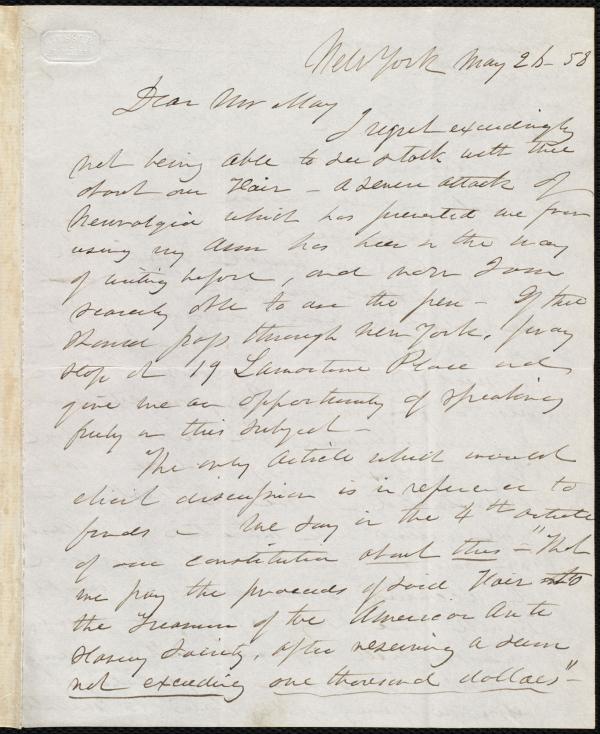 New York May 26 - 58
Dear Mr May
I regret exceedingly
not being able to see & talk with thee
about our Fair - A severe attack of
Neuralgia which has prevented me from
using my arm has been in the way
of writing before, and now I am
scarcely able to use the pen - If thee
should pass through New York, pray
stop at 19 Lamartine Place and
give me an opportunity of speaking
fully on this subject -
The only Article which would
elicit discussion is in reference to
funds - We say in the 4th article
of our constitution about this - "That
we pay the proceeds of said Fair to
the Treasurer of the American Anti
Slavery Society, after reserving a sum
not exceeding one thousand dollars" -